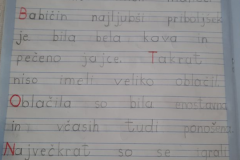 Babičin najljubši priboljšek
je bila bela kava in
pečeno jajce. Takrat
niso imeli veliko oblačil.
Oblačila so bila enostavna
in včasih tudi ponošena.
Največkrat so se igrali